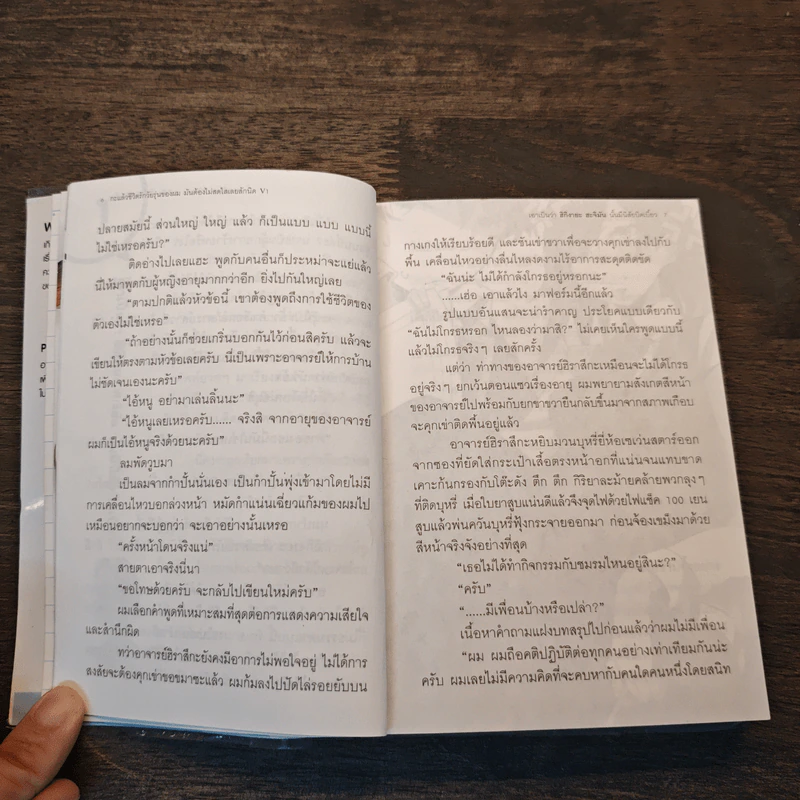 6 กะแล้วชีวิตรักวัยรุ่นของผม มันต้องไม่สดใสเลยสักนิด V1
ปลายสมัยนี้ ส่วนใหญ่ ใหญ่ แล้ว ก็เป็นแบบ แบบ แบบนี้
ไม่ใช่เหรอครับ?”
ติดอ่างไปเลยแฮะ พูดกับคนอื่นก็ประหม่าจะแย่แล้ว
นี่ให้มาพูดกับผู้หญิงอายุมากกว่าอีก ยิ่งไปกันใหญ่เลย
“ตามปกติแล้วหัวข้อนี้ เขาต้องพูดถึงการใช้ชีวิตของ
ตัวเองไม่ใช่เหรอ”
“ถ้าอย่างนั้นก็ช่วยเกริ่นบอกกันไว้ก่อนสิครับ แล้วจะ
เขียนให้ตรงตามหัวข้อเลยครับ นี่เป็นเพราะอาจารย์ให้การบ้าน
ไม่ชัดเจนเองนะครับ”
“ไอ้หนู อย่ามาเล่นลิ้นนะ”
“ไอ้หนูเลยเหรอครับ...... จริงสิ จากอายุของอาจารย์
ผมก็เป็นไอ้หนูจริงด้วยนะครับ”
ลมพัดวูบมา
เป็นลมจากกำปั้นนั่นเอง เป็นกำปั้นพุ่งเข้ามาโดยไม่มี
การเคลื่อนไหวบอกล่วงหน้า หมัดกำแน่นเฉี่ยวแก้มของผมไป
เหมือนอยากจะบอกว่า จะเอาอย่างนั้นเหรอ
“ครั้งหน้าโดนจริงแน่”
สายตาเอาจริงนี่นา
“ขอโทษด้วยครับ จะกลับไปเขียนใหม่ครับ”
ผมเลือกคำพูดที่เหมาะสมที่สุดต่อการแสดงความเสียใจ
และสำนึกผิด
ทว่าอาจารย์ฮิราสึกะยังคงมีอาการไม่พอใจอยู่ ไม่ได้การ
สงสัยจะต้องคุกเข่าขอขมาซะแล้ว ผมก้มลงไปปัดไล่รอยยับบน
เขาเป็นว่า ฮิกิงายะ ฮะจิมัน นั้นมีนิสัยบิดเบี้ยว 7
กางเกงให้เรียบร้อยดี และชันเข่าขวาเพื่อจะวางคุกเข่าลงไปกับ
พื้น เคลื่อนไหวอย่างลื่นไหลงดงามไร้อาการสะดุดติดขัด
“ฉันน่ะ ไม่ได้กำลังโกรธอยู่หรอกนะ”
......เฮ่อ เอาแล้วไง มาฟอร์มนี้อีกแล้ว
รูปแบบอันแสนจะน่ารำคาญ ประโยคแบบเดียวกับ
“ฉันไม่โกรธหรอก ไหนลองว่ามาสิ?” ไม่เคยเห็นใครพูดแบบนี้
แล้วไม่โกรธจริงๆ เลยสักครั้ง
แต่ว่า ท่าทางของอาจารย์ฮิราสึกะเหมือนจะไม่ได้โกรธ
อยู่จริงๆ ยกเว้นตอนแซวเรื่องอายุ ผมพยายามสังเกตสีหน้า
ของอาจารย์ไปพร้อมกับยกขาขวายืนกลับขึ้นมาจากสภาพเกือบ
จะคุกเข่าติดพื้นอยู่แล้ว
อาจารย์ฮิราสึกะหยิบมวนบุหรี่ยี่ห้อเซเว่นสตาร์ออก
จากซองที่ยัดใส่กระเป๋าเสื้อตรงหน้าอกที่แน่นจนแทบขาด
เคาะก้นกรองกับโต๊ะดัง ตึก ตึก กิริยาละม้ายคล้ายพวกลุงๆ
ที่ติดบุหรี่ เมื่อใบยาสูบแน่นดีแล้วจึงจุดไฟด้วยไฟแช็ค 100 เยน
สูบแล้วพ่นควันบุหรี่ฟุ้งกระจายออกมา ก่อนจ้องเขม็งมาด้วย
สีหน้าจริงจังอย่างที่สุด
“เธอไม่ได้ทำกิจกรรมกับชมรมไหนอยู่สินะ?”
“ครับ”
“......มีเพื่อนบ้างหรือเปล่า?”
เนื้อหาคำถามแฝงบทสรุปไปก่อนแล้วว่าผมไม่มีเพื่อน
“ผม ผมถือคติปฏิบัติต่อทุกคนอย่างเท่าเทียมกันน่ะ
ครับ ผมเลยไม่มีความคิดที่จะคบหากับคนใดคนหนึ่งโดยสนิท